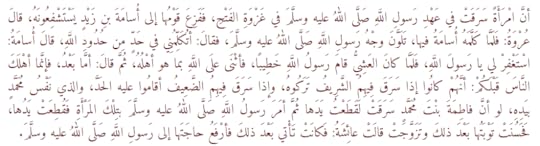 أنَّ امْرَأَةً سَرَقَتْ في عَهْدِ رسولِ اللَّهِ صَلَّى اللهُ عليه وسلَّمَ في غَزْوَةِ الفَتْحِ، فَفَزِعَ قَوْمُها إلى أُسامَةَ بنِ زَيْدٍ يَسْتَشْفِعُونَهُ، قالَ
عُرْوَةُ: فَلَمَّا كَلَّمَهُ أُسامَةُ فيها، تَلَوَّنَ وجْهُ رَسولِ اللَّهِ صَلَّى اللهُ عليه وسلَّمَ، فقالَ: أتُكَلِّمُنِي في حَدٍّ مِن حُدُودِ اللَّهِ، قالَ أُسامَةُ:
اسْتَغْفِرْ لي يا رَسولَ اللَّهِ، فَلَمَّا كانَ العَشِيُّ قامَ رَسولُ اللَّهِ خَطِيبًا، فأثْنَى علَى اللَّهِ بما هو أهْلُهُ، ثُمَّ قالَ: أمَّا بَعْدُ، فإنَّما أهْلَكَ
النَّاسَ قَبْلَكُمْ: أنَّهُمْ كانُوا إذا سَرَقَ فِيهِمُ الشَّرِيفُ تَرَكُوهُ، وإذا سَرَقَ فِيهِمُ الضَّعِيفُ أقامُوا عليه الحَدَّ، والذي نَفْسُ مُحَمَّدٍ
بيَدِهِ، لو أنَّ فاطِمَةَ بنْتَ مُحَمَّدٍ سَرَقَتْ لَقَطَعْتُ يَدَها ثُمَّ أمَرَ رَسولُ اللَّهِ صَلَّى اللهُ عليه وسلَّمَ بتِلْكَ المَرْأَةِ فَقُطِعَتْ يَدُها،
فَحَسُنَتْ تَوْبَتُها بَعْدَ ذلكَ وتَزَوَّجَتْ قالَتْ عائِشَةُ: فَكانَتْ تَأْتي بَعْدَ ذلكَ فأرْفَعُ حاجَتَها إلى رَسولِ اللَّهِ صَلَّى اللهُ عليه وسلَّمَ.